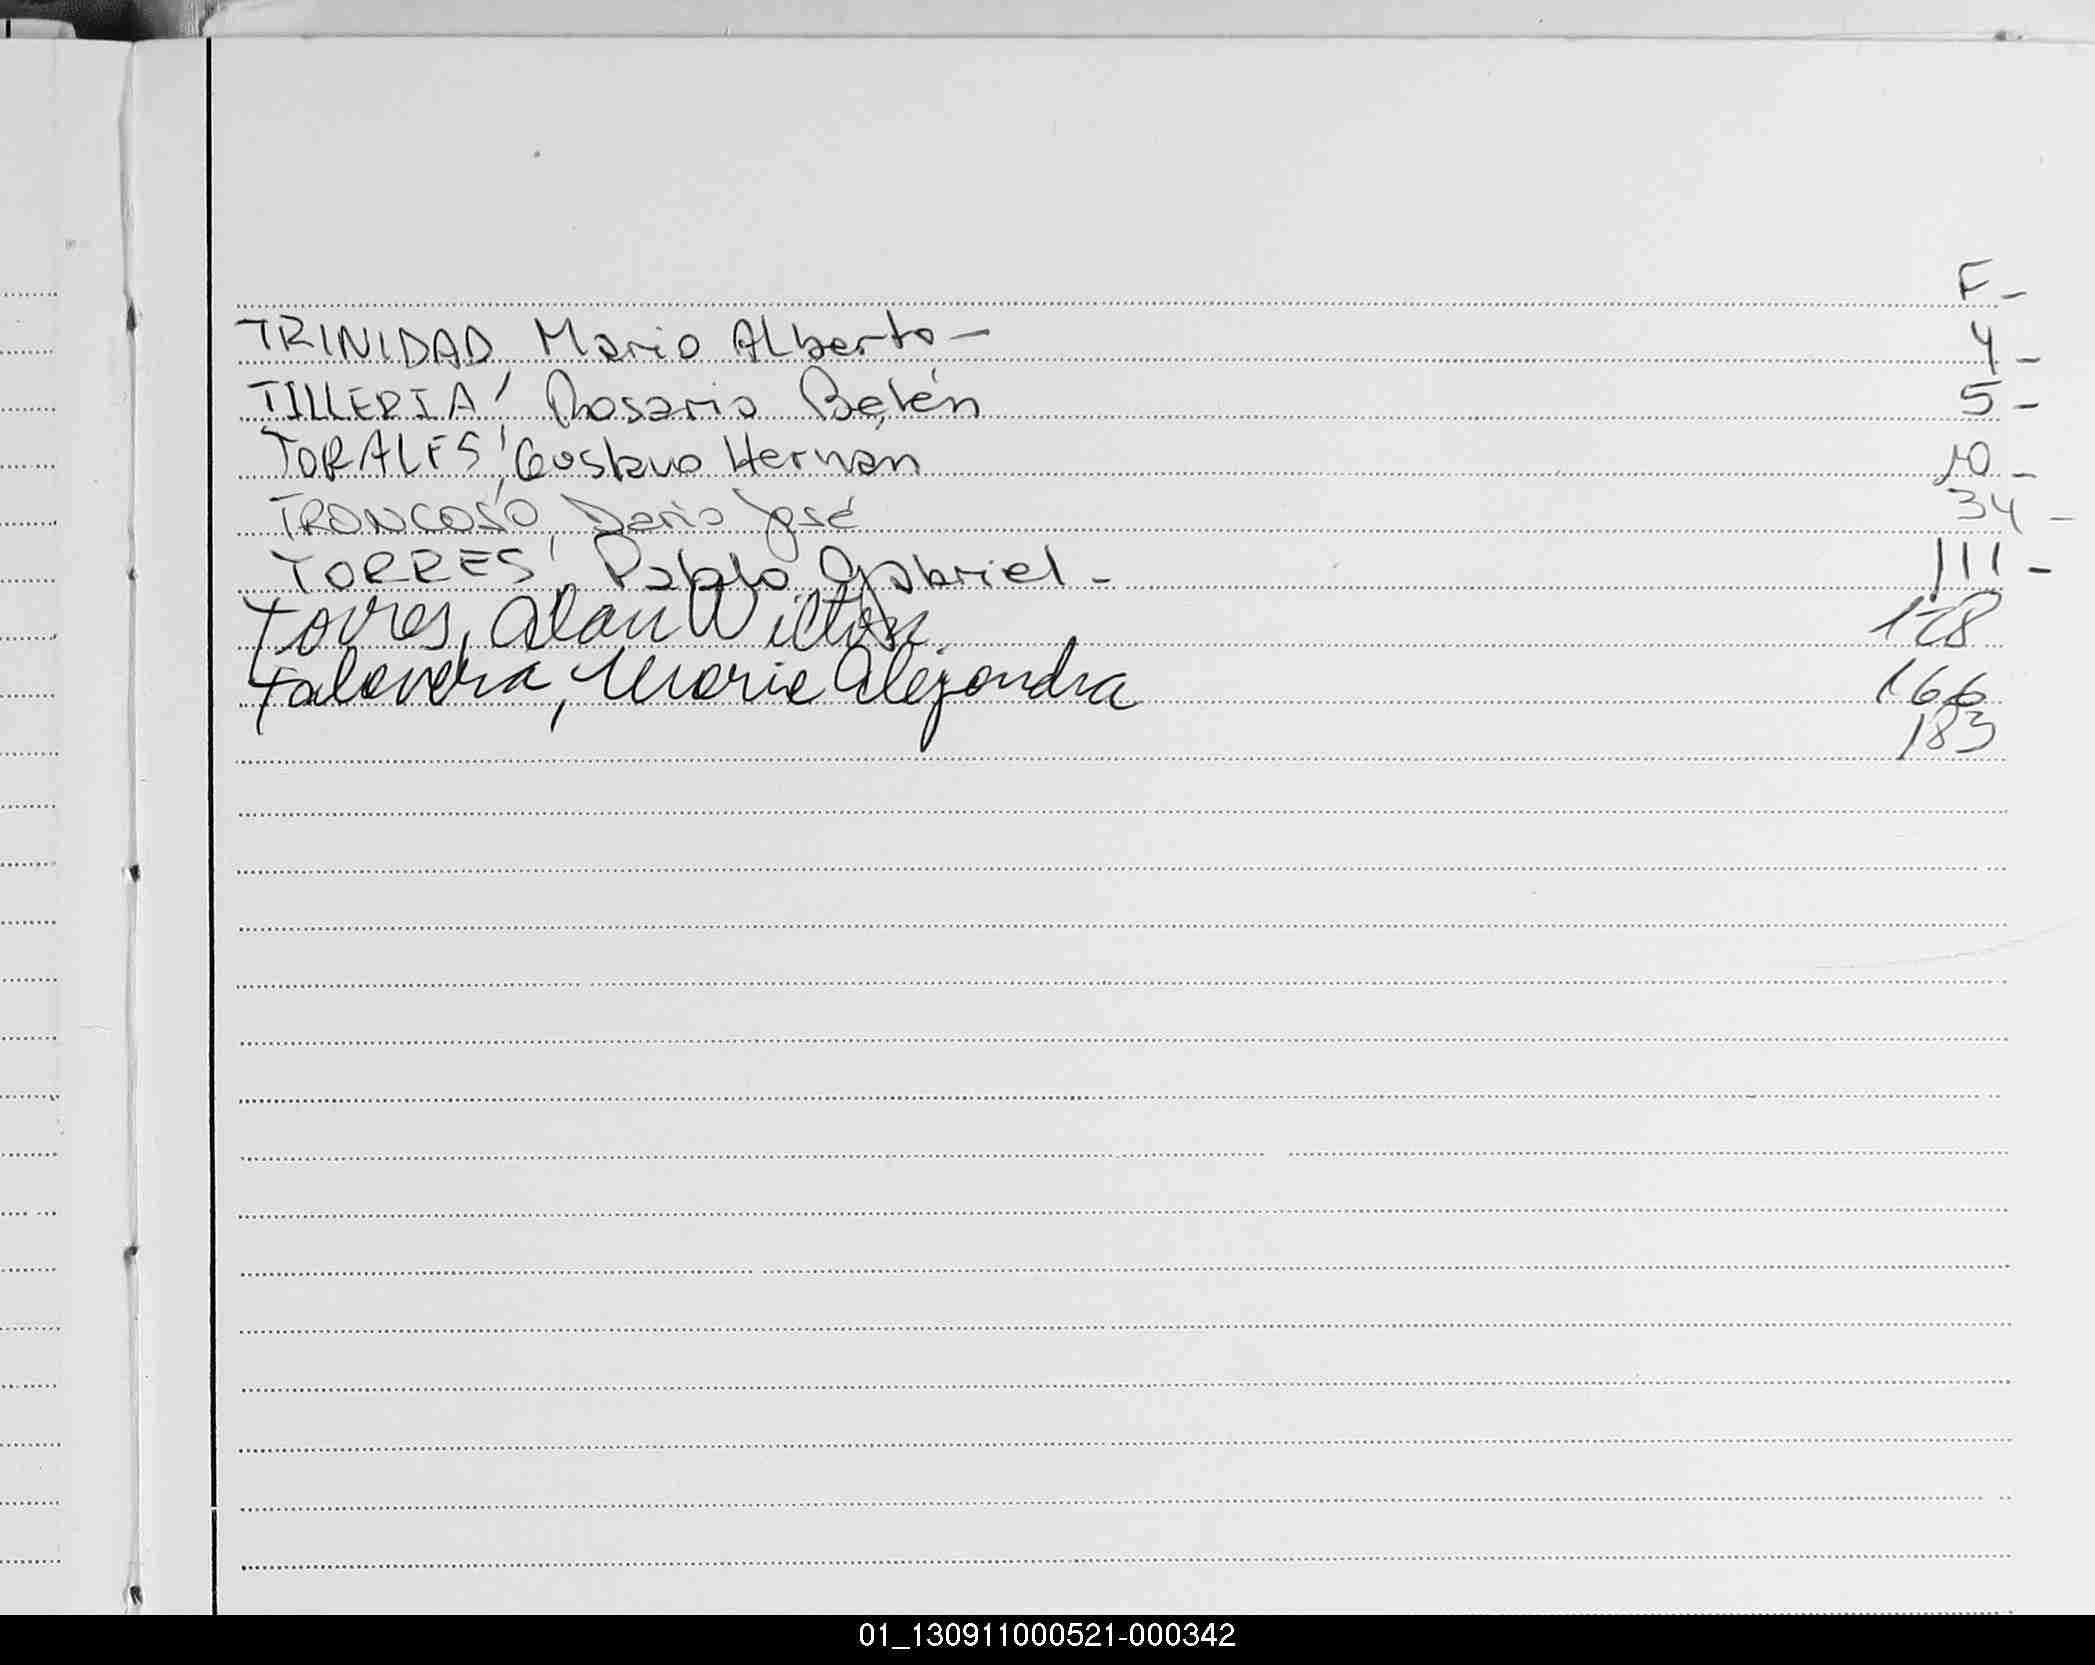 F-
TRINIDAD Mario Alberto- 4-
TILLERIA, Rosario Belén 5-
TORALES, Gustavo Hernan 10-
TRONCOSO, Dario José 34-
TORRES, Pablo Gabriel- 111-
Torres, Alan Wilton 128
Talavera, Maria Alejandra 166
183
01_130911000521-000342